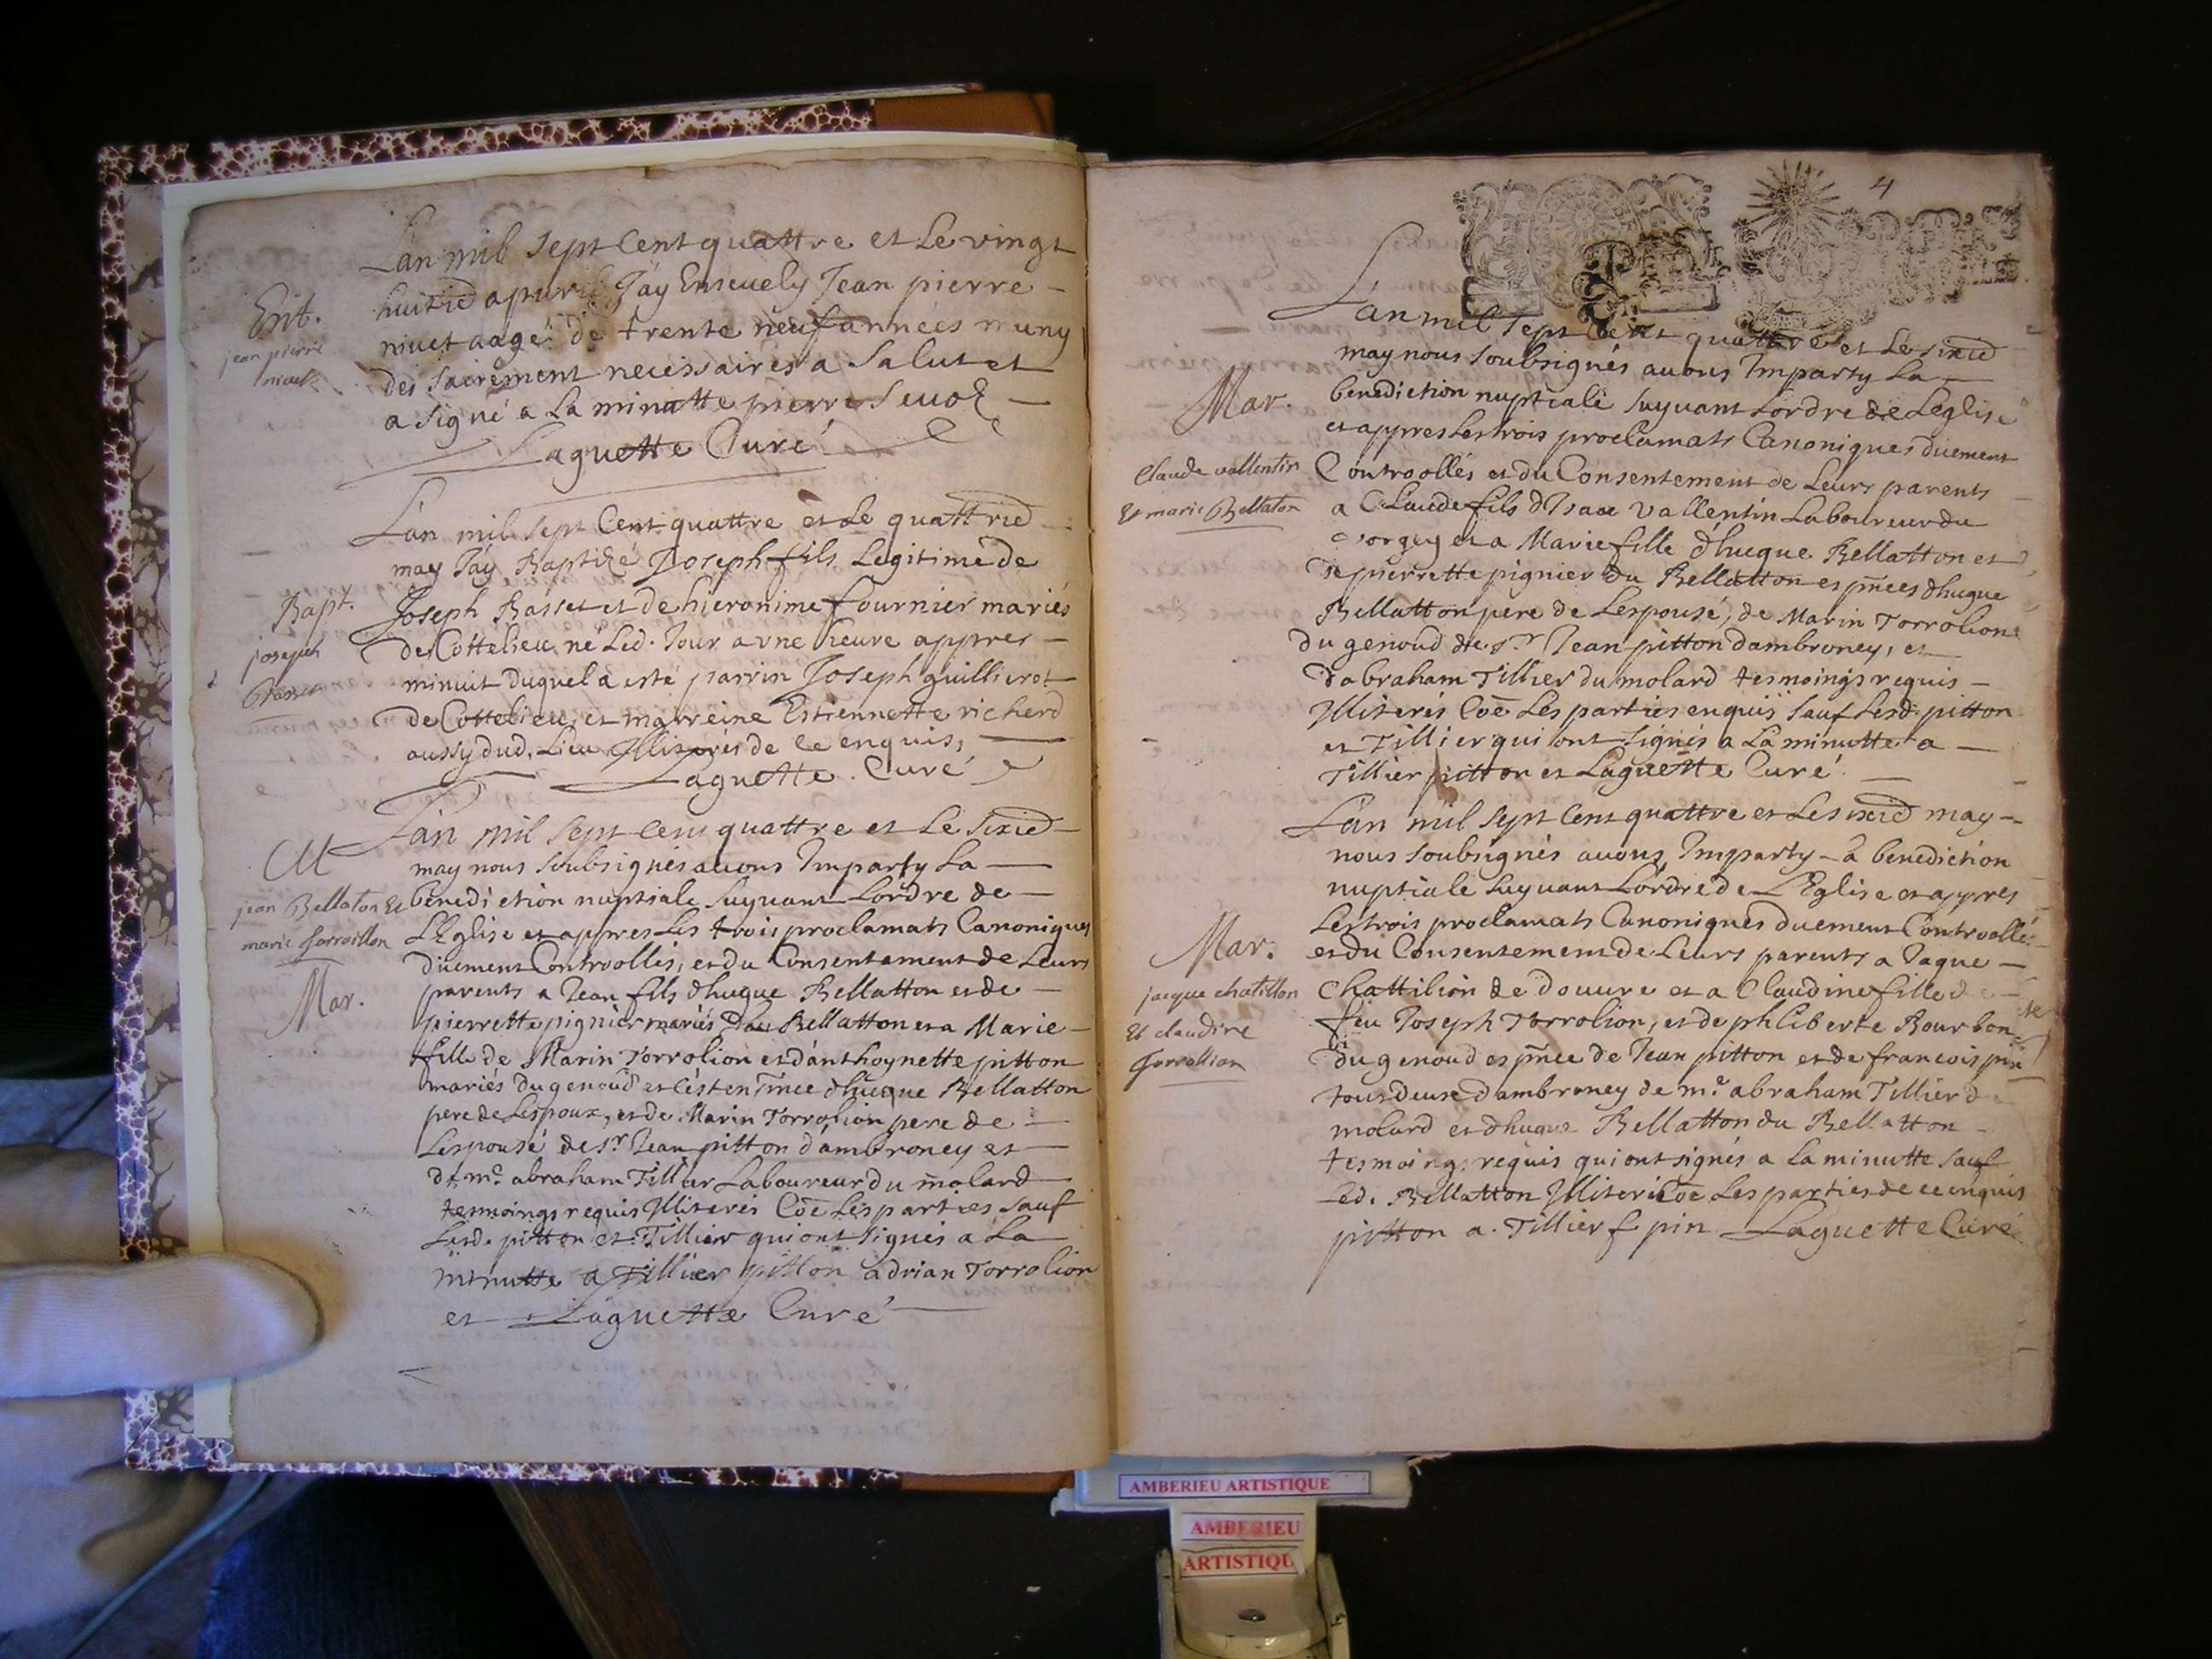 L'an mil sept Cent quattre et Le vingt
huitie apvril J'ay Ensevely Jean pierre
Ent.
jean pierre
nivet
nivet aagé de trente neuf années muny
des sacrement necessaires a Salut et
a signé a La minutte pierre
Laguette Curé
L'an mil sept Cent quattre et Le quattrie
may J'ay Baptizé Joseph fils Legitime de
Bapt.
joseph
Basset
Joseph Basset et de hieronime fournier mariés
de Cottelieu né Led. Jour a vne heure appres
minuit duquel a esté parrin Joseph guillierot
de Cottelieu, et marreine Estiennette richerd
aussy dud. Lieu Illiterés de ce enquis,
Laguette Curé
L'an mil sept Cent quattre et Le sixie
may nous soubsignés avons Imparty La
M
jean Bellaton Et
marie forroillon
Mar.
benediction nuptiale suyvant Lordre de
L'Eglise et appres Les trois proclamats Canoniques
düement Controollés, et du Consentement de Leurs
parents a Jean fils d'hugue Bellatton et de
pierrette pignier mariés du Bellatton et a Marie
fille de Marin Torrolion et d'anthoynette pitton
mariés du genoud et c'est en pnce d'hugue Bellatton
pere de Lespoux, et de Marin Torrolion pere de
Lespousé de sr. Jean pitton d'ambroney et
de me. abraham Tillier Laboureur du molard
tesmoings requis Illiterés Coe Les parties sauf
Lesd. pitton et Tillier qui ont signés a La
minutte a Tillier pitton adrian Torrolion
et Laguette Curé
4
L'an mil sept Cent quattre et Le sixie
may nous soubsignés avons Imparty La
Mar.
Claude vallentin
Et marie Bellaton
benediction nuptiale suyvant Lordre de Leglise
et appres Les trois proclamats Canoniques düement
Controollés et du Consentement de Leurs parents
a Claude fils d'Isaac Vallentin Laboureur du
et a Marie fille d'hugue Bellatton et
de pierrette pignier du Bellatton es pnces d'hugue
Bellatton pere de Lespousé, de Marin Torrolion
du genoud de sr. Jean pitton dambroney, et
d'abraham Tillier du molard tesmoings requis
Illiterés Coe Les parties enquis sauf Lesd. pitton
et Tillier qui ont signés a La minutte a
Tillier pitton et Laguette Curé
L'an mil sept Cent quattre et Le sixie may
nous soubsignés avons Imparty La benediction
nuptiale suyvant Lordre de L'Eglise et appres
Mar.
jacque chatillon
Et claudine
forrollion
Les trois proclamats Canoniques duement Controollés
et du Consentement de Leurs parents a Jaque
Chattilion de douvre et a Claudine fille de
feu Joseph Torrolion, et de philiberte Bourbon
du genoud es pnce de Jean pitton et de francois pin
tous deux d'ambroney de me. abraham Tillier du
molard et d'hugue Bellatton du Bellatton
tesmoings requis qui ont signés a La minutte sauf
Led. Bellatton Illiteré Coe Les parties de ce enquis
pitton a. Tillier f pin Laguette Curé
AMBERIEU ARTISTIQUE
AMBERIEU
ARTISTIQU